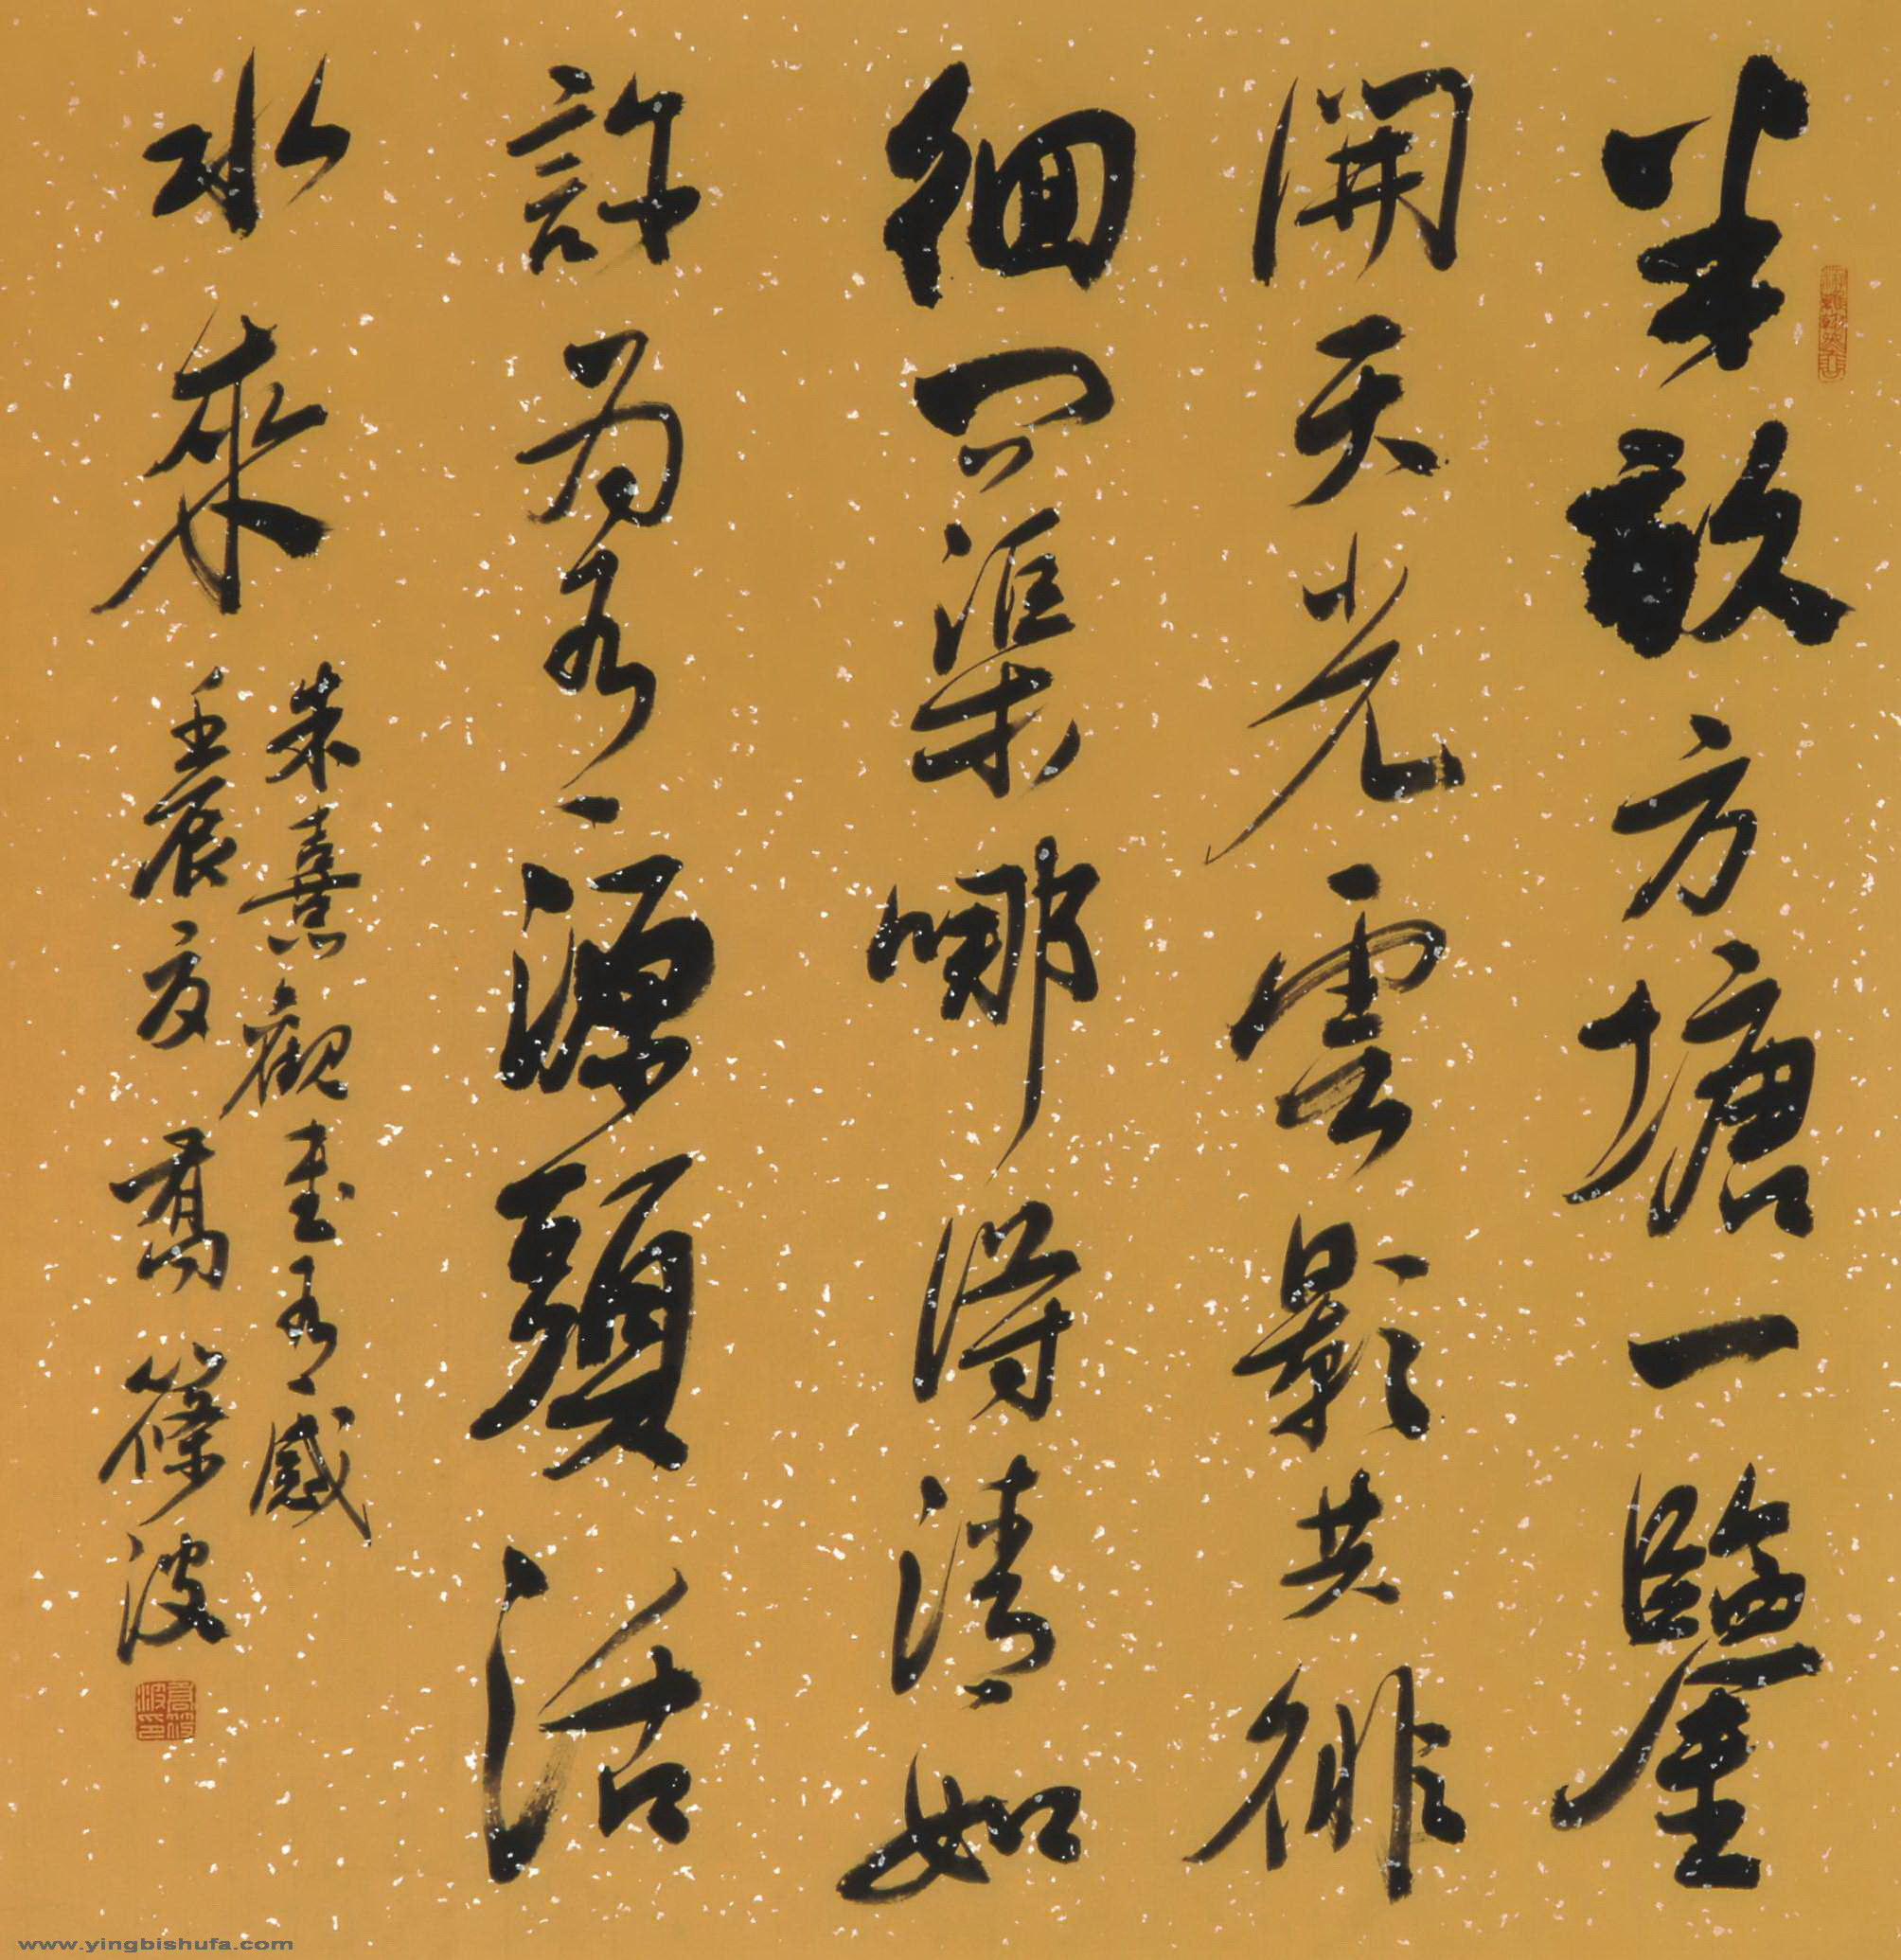 半畝方塘一鑒
開天光雲影共徘
徊問渠哪得清如
許為有源頭活
水來
朱熹觀書有感
壬辰夏喬篠波
www.yingbishufa.com